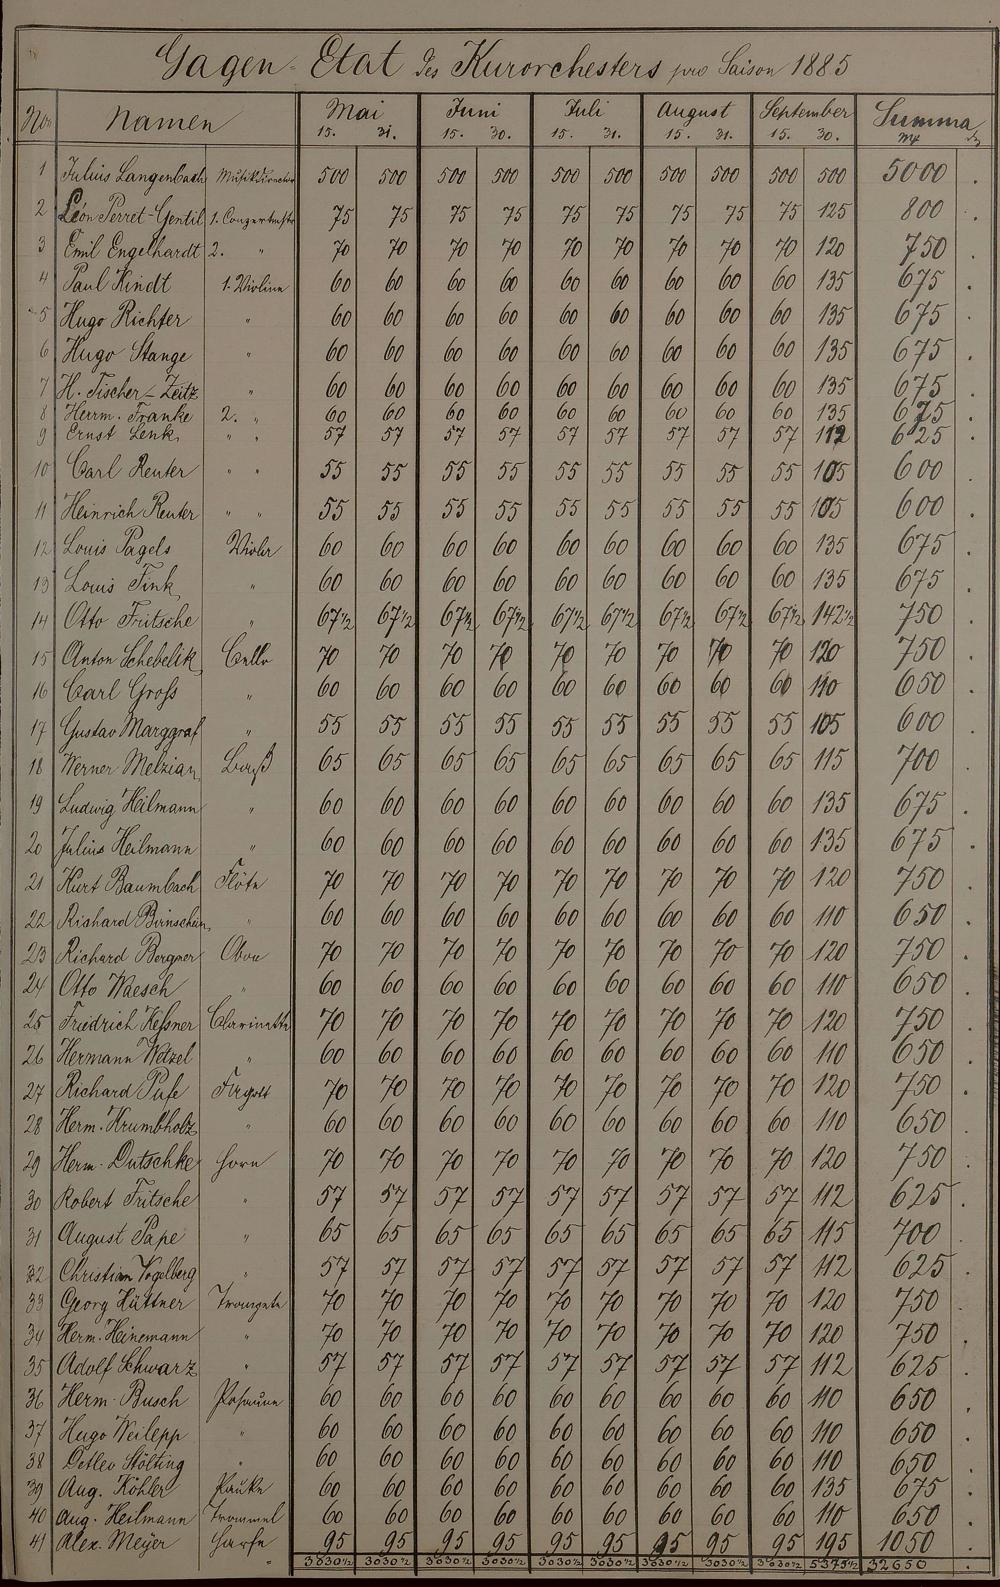 Gagen-Etat des Kurorchesters pro Saison 1885
Nro. Namen Mai Juni Juli August September Summa
15. 31. 15. 30. 15. 31. 15. 31. 15. 30. Mk
1 Julius Langenbach Musikdirector 500 500 500 500 500 500 500 500 500 500 5000 .
2 Léon Perret-Gentil 1. Conzertmstr 75 75 75 75 75 75 75 75 75 125 800 .
3 Emil Engelhardt 2. " 70 70 70 70 70 70 70 70 70 120 750 .
4 Paul Kindt 1. Violine 60 60 60 60 60 60 60 60 60 135 675 .
5 Hugo Richter " 60 60 60 60 60 60 60 60 60 135 675 .
6 Hugo Stange " 60 60 60 60 60 60 60 60 60 135 675 .
7 H. Fischer-Zeitz " 60 60 60 60 60 60 60 60 60 135 675 .
8 Herrm. Franke 2. " 60 60 60 60 60 60 60 60 60 135 675 .
9 Ernst Lenk " " 57 57 57 57 57 57 57 57 57 112 625 .
10 Carl Reuter " " 55 55 55 55 55 55 55 55 55 105 600 .
11 Heinrich Reuter " " 55 55 55 55 55 55 55 55 55 105 600 .
12 Louis Pagels Violer 60 60 60 60 60 60 60 60 60 135 675 .
13 Louis Fink " 60 60 60 60 60 60 60 60 60 135 675 .
14 Otto Fritsche " 67 1/2 67 1/2 67 1/2 67 1/2 67 1/2 67 1/2 67 1/2 67 1/2 67 1/2 142 1/2 750 .
15 Anton Schebelik Cello 70 70 70 70 70 70 70 70 70 120 750 .
16 Carl Groß " 60 60 60 60 60 60 60 60 60 110 650 .
17 Gustav Marggraf " 55 55 55 55 55 55 55 55 55 105 600 .
18 Werner Melzian Bass 65 65 65 65 65 65 65 65 65 115 700 .
19 Ludwig Heilmann " 60 60 60 60 60 60 60 60 60 135 675 .
20 Julius Heilmann " 60 60 60 60 60 60 60 60 60 135 675 .
21 Kurt Baumbach Flöte 70 70 70 70 70 70 70 70 70 120 750 .
22 Richard " 60 60 60 60 60 60 60 60 60 110 650 .
23 Richard Bergner Oboe 70 70 70 70 70 70 70 70 70 120 750 .
24 Otto Waesch " 60 60 60 60 60 60 60 60 60 110 650 .
25 Friedrich Keßner Clarinette 70 70 70 70 70 70 70 70 70 120 750 .
26 Hermann Wetzel " 60 60 60 60 60 60 60 60 60 110 650 .
27 Richard Pufe Fagott 70 70 70 70 70 70 70 70 70 120 750 .
28 Herm. Krumbholz " 60 60 60 60 60 60 60 60 60 110 650 .
29 Herm. Dutschke Horn 70 70 70 70 70 70 70 70 70 120 750 .
30 Robert Fritsche " 57 57 57 57 57 57 57 57 57 112 625 .
31 August Pape " 65 65 65 65 65 65 65 65 65 115 700 .
32 Christian Vogelberg " 57 57 57 57 57 57 57 57 57 112 625 .
33 Georg Hüttner Trompete 70 70 70 70 70 70 70 70 70 120 750 .
34 Herm. Heinemann " 70 70 70 70 70 70 70 70 70 120 750 .
35 Adolf Schwarz " 57 57 57 57 57 57 57 57 57 112 625 .
36 Herm. Busch Posaune 60 60 60 60 60 60 60 60 60 110 650 .
37 Hugo Weilepp " 60 60 60 60 60 60 60 60 60 110 650 .
38 Detlev Stölting " 60 60 60 60 60 60 60 60 60 110 650 .
39 Aug. Köhler Pauke 60 60 60 60 60 60 60 60 60 135 675 .
40 Aug. Heilmann Trommel 60 60 60 60 60 60 60 60 60 110 650 .
41 Alex. Meyer Harfe 95 95 95 95 95 95 95 95 95 195 1050 .
3030 1/2 3030 1/2 3030 1/2 3030 1/2 3030 1/2 3030 1/2 3030 1/2 3030 1/2 3030 1/2 5375 1/2 32650 .